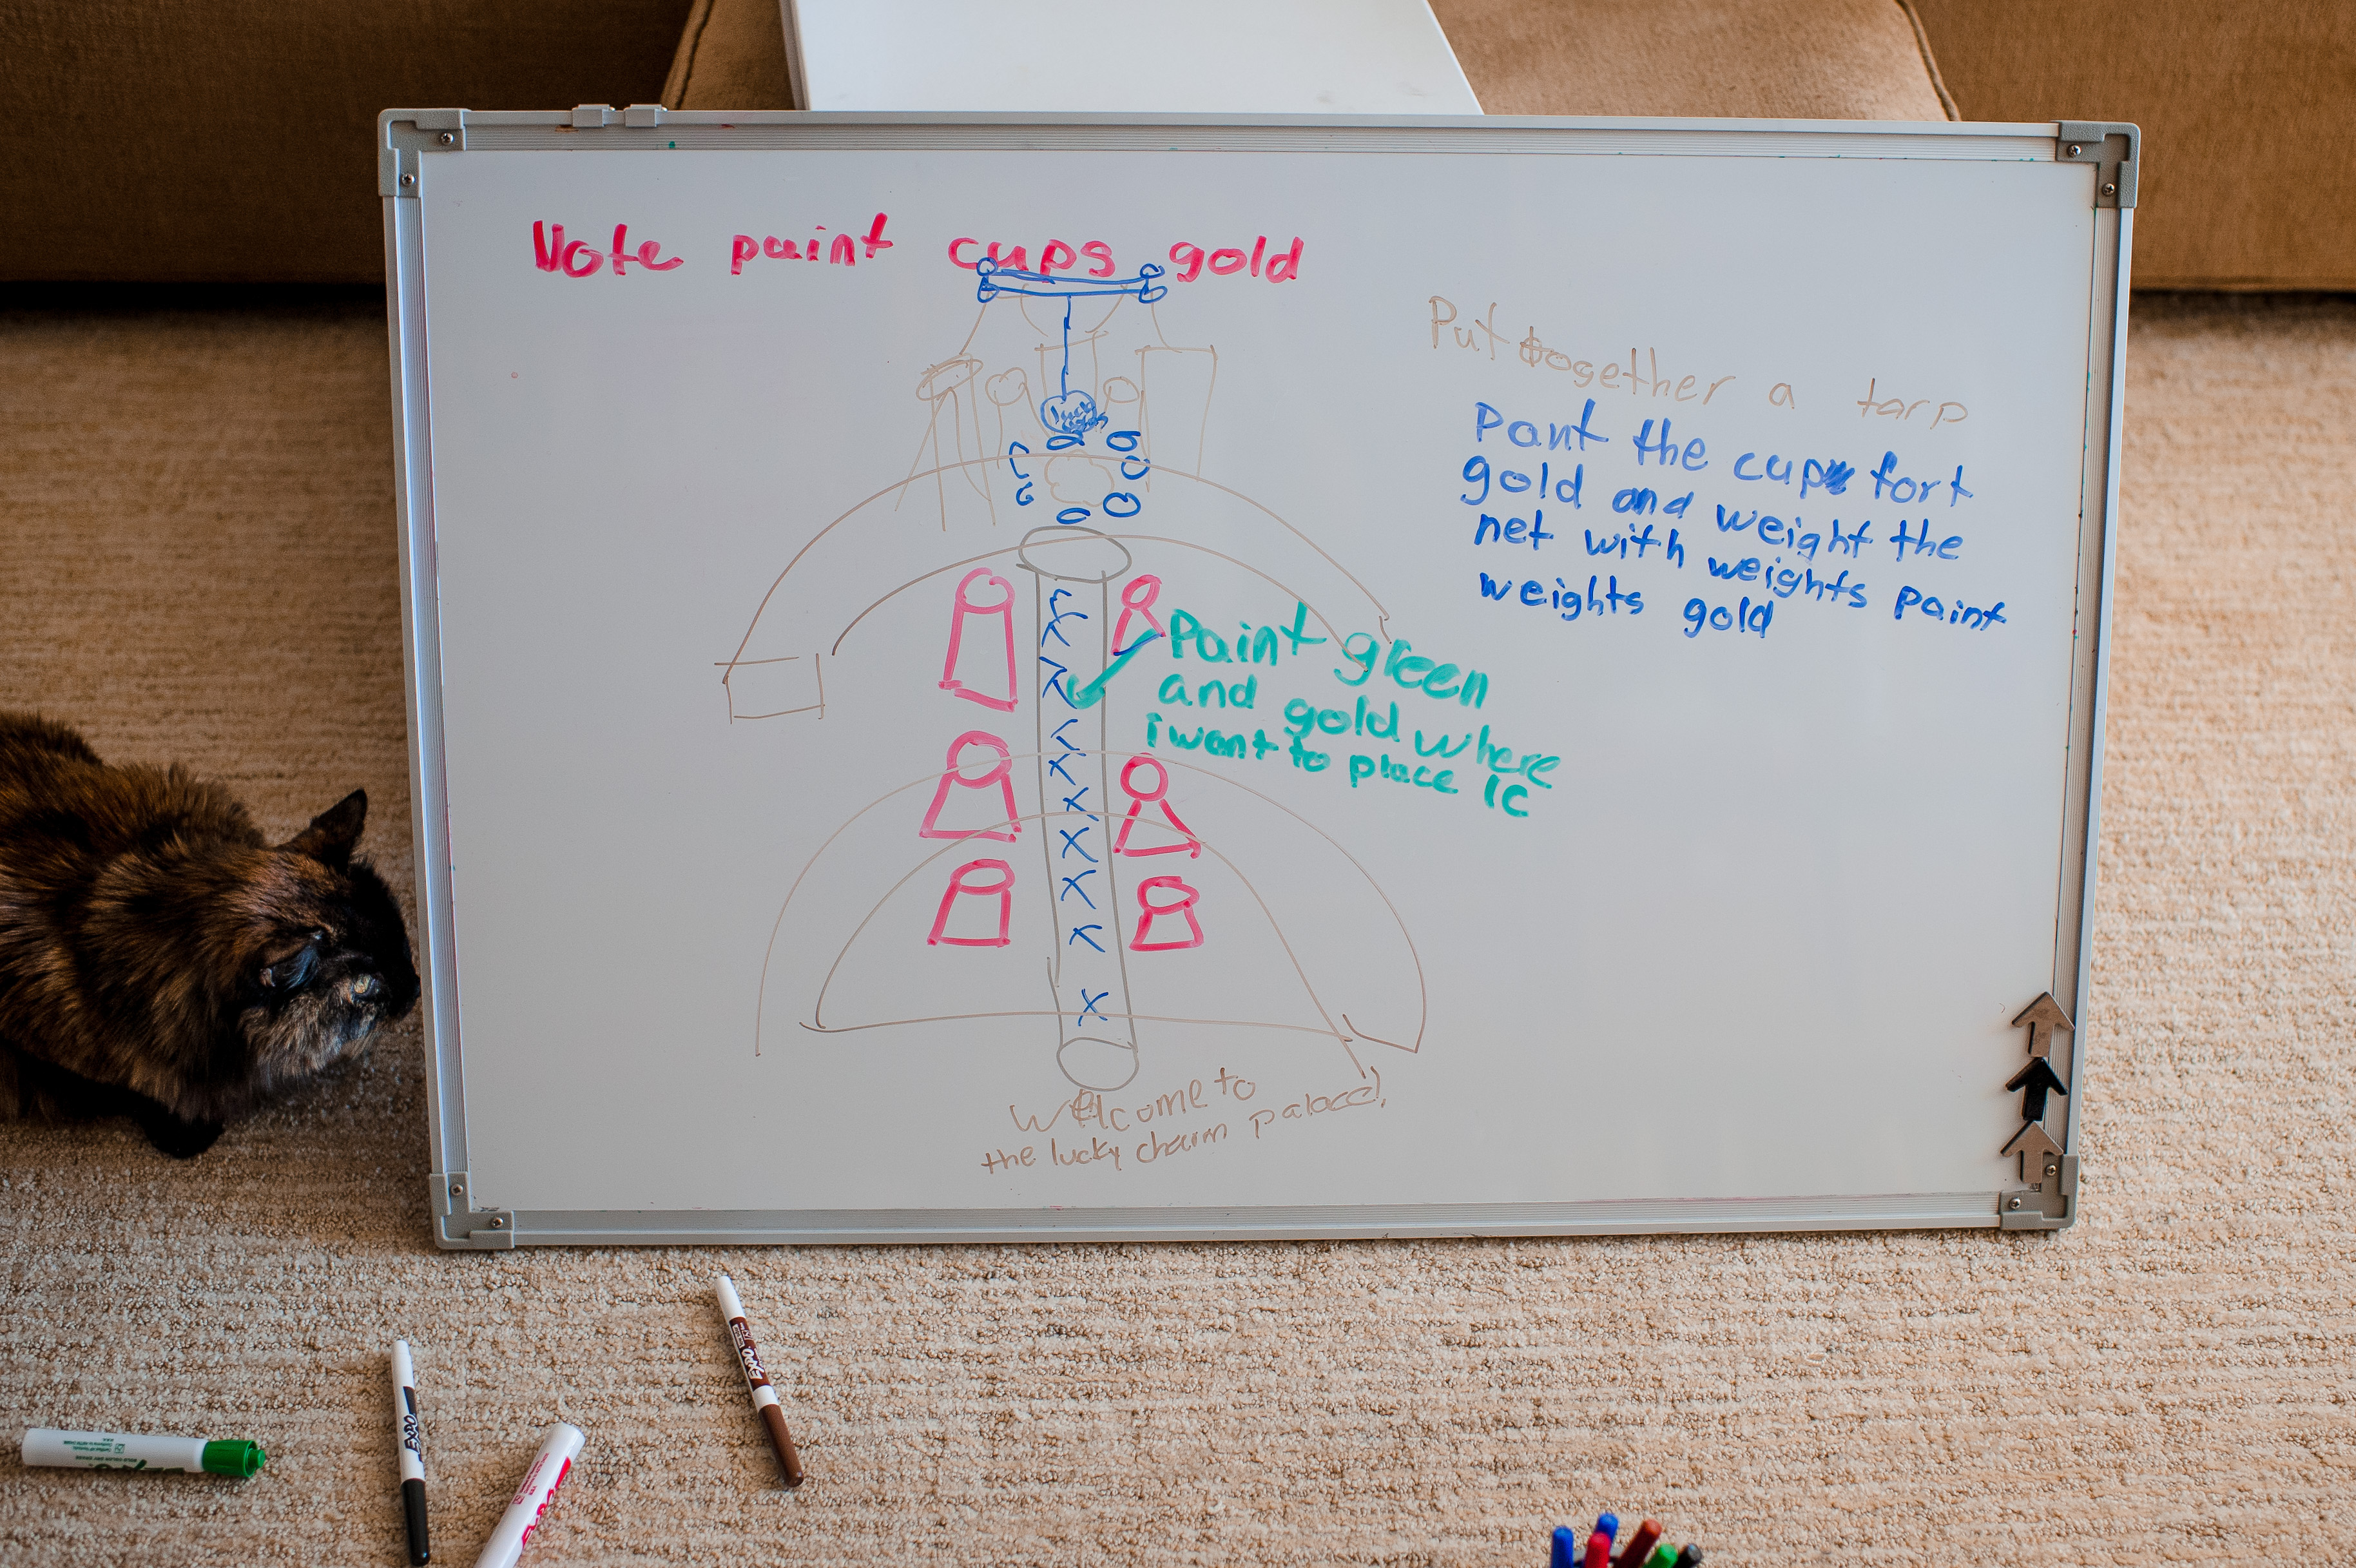 Note paint cups gold
Put together a tarp
Pant the cup fort
gold and weight the
net with weights paint
weights gold
luck
Paint green
and gold where
i want to place lC
Welcome to
the lucky charm palace!
EXPO
EXPO
EXPO